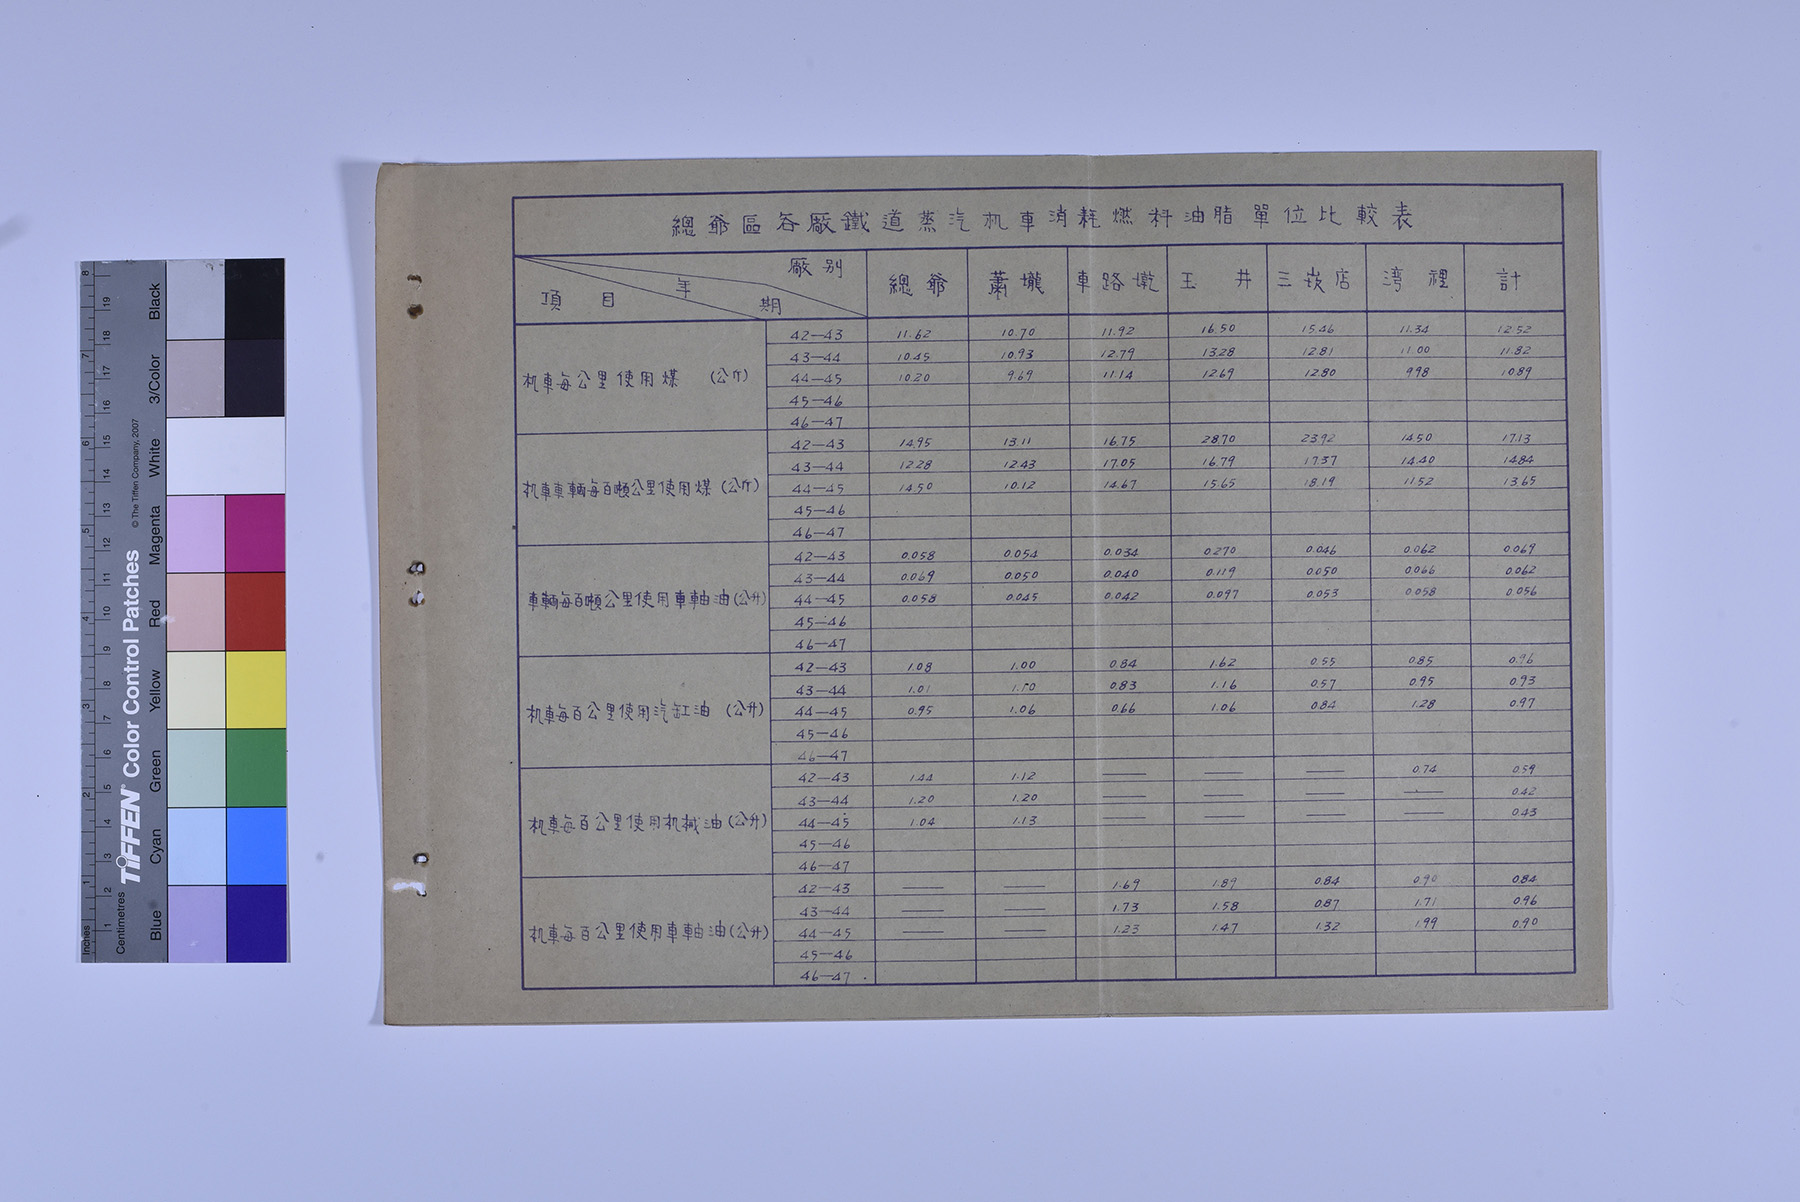 總爺區各廠鐵道蒸汽机車消耗燃料油脂單位比較表
項目 年期 廠別 總爺 蕭壠 車路墩 玉井 三崁店 湾裡 計
机車每公里使用煤 (公斤)
42—43 11.62 10.70 11.92 16.50 15.46 11.34 12.52
43—44 10.45 10.93 12.79 13.28 12.81 11.00 11.82
44—45 10.20 9.69 11.14 12.69 12.80 9.98 10.89
45—46
46—47
机車車輛每百噸公里使用煤 (公斤)
42—43 14.95 13.11 16.75 28.70 23.92 14.50 17.13
43—44 12.28 12.43 17.05 16.79 17.37 14.40 14.84
44—45 14.50 10.12 14.67 15.65 18.19 11.52 13.65
45—46
46—47
車輛每百噸公里使用車軸油 (公升)
42—43 0.058 0.054 0.034 0.270 0.046 0.062 0.069
43—44 0.069 0.050 0.040 0.119 0.050 0.066 0.062
44—45 0.058 0.045 0.042 0.097 0.053 0.058 0.056
45—46
46—47
机車每百公里使用汽缸油 (公升)
42—43 1.08 1.00 0.84 1.62 0.55 0.85 0.96
43—44 1.01 1.10 0.83 1.16 0.57 0.95 0.93
44—45 0.95 1.06 0.66 1.06 0.84 1.28 0.97
45—46
46—47
机車每百公里使用机械油 (公升)
42—43 1.44 1.12 — — — 0.74 0.59
43—44 1.20 1.20 — — — — 0.42
44—45 1.04 1.13 — — — — 0.43
45—46
46—47
机車每百公里使用車軸油 (公升)
42—43 — — 1.69 1.89 0.84 0.90 0.84
43—44 — — 1.73 1.58 0.87 1.71 0.96
44—45 — — 1.23 1.47 1.32 1.99 0.90
45—46
46—47
TIFFEN® Color Control Patches
© The Tiffen Company, 2007
Inches 1 2 3 4 5 6 7 8
Centimetres 1 2 3 4 5 6 7 8 9 10 11 12 13 14 15 16 17 18 19
Blue Cyan Green Yellow Red Magenta White 3/Color Black